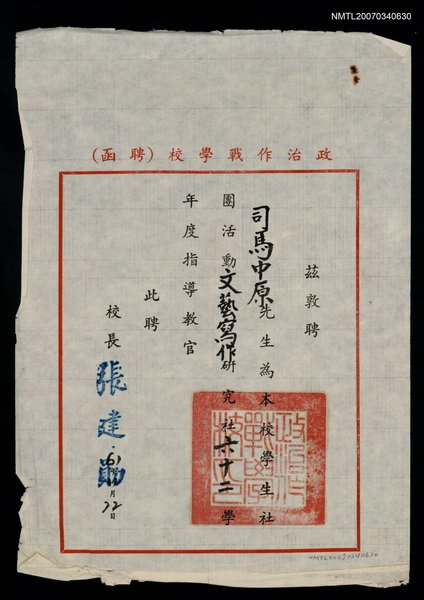 NMTL20070340630
政治作戰學校（聘函）
茲敦聘
司馬中原先生為本校學生社
團活動文藝寫作研究社六十二學
年度指導教官
此聘
校長
張建勛
月22日
NMTL20070340630